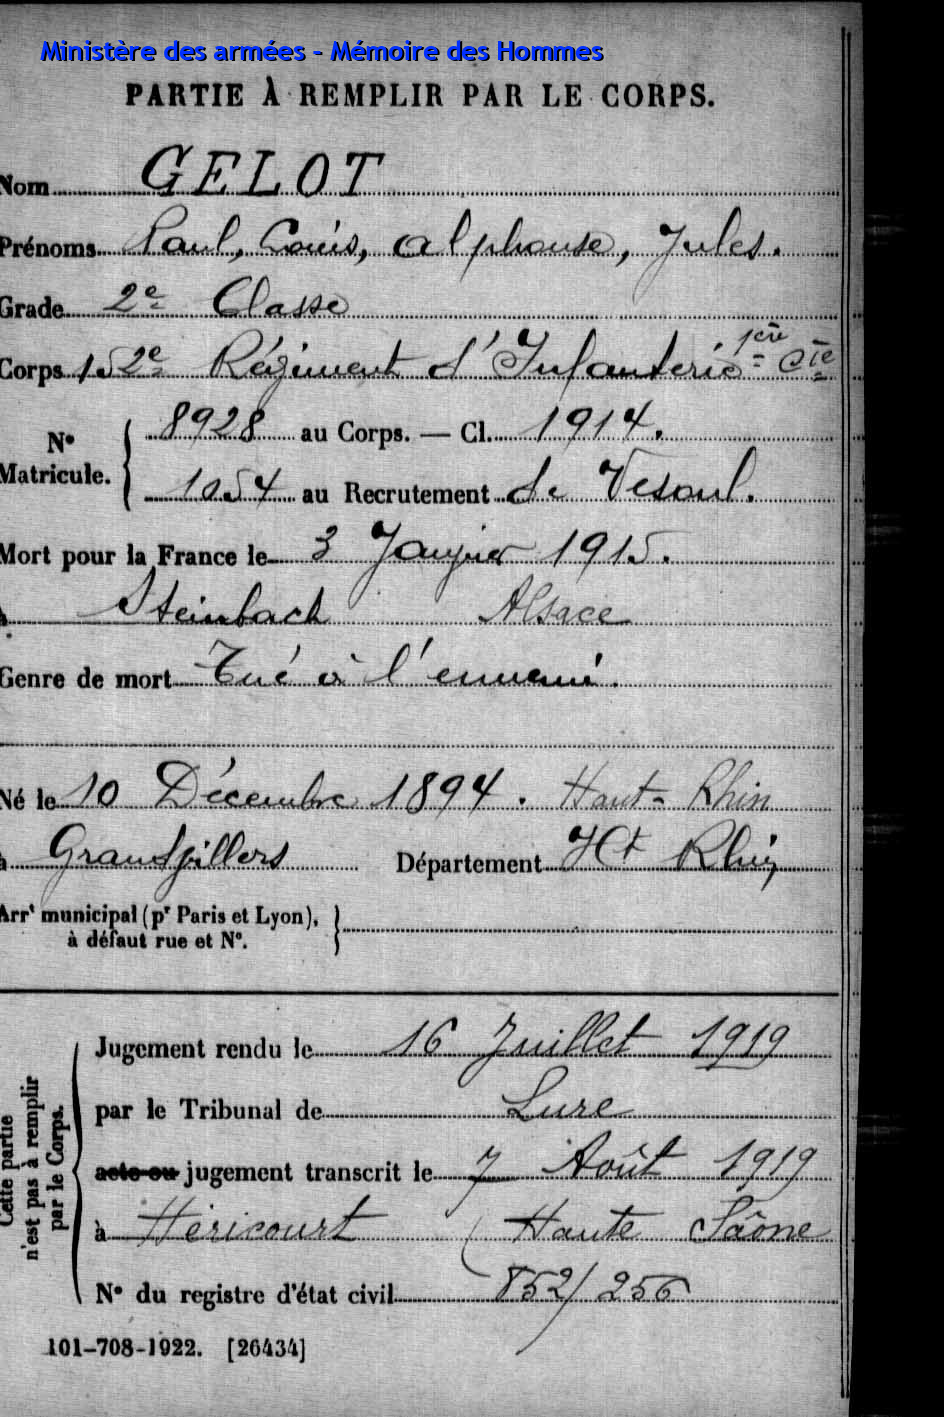 Ministère des armées - Mémoire des Hommes
PARTIE À REMPLIR PAR LE CORPS.
Nom GELOT
Prénoms Paul, Louis, Alphonse, Jules.
Grade 2e Classe
Corps 152e Régiment d'Infanterie 1ère Cie
N° Matricule. 8928 au Corps. — Cl. 1914.
1054 au Recrutement de Vesoul.
Mort pour la France le 3 Janvier 1915.
à Steinbach Alsace
Genre de mort Tué à l'ennemi.
Né le 10 Décembre 1894. Haut-Rhin
à Grandvillers Département Ht Rhin
Arrt municipal (pr Paris et Lyon),
à défaut rue et N°.
Cette partie n'est pas à remplir par le Corps.
Jugement rendu le 16 Juillet 1919
par le Tribunal de Lure
acte ou jugement transcrit le 7 Août 1919
à Héricourt (Haute Saône
N° du registre d'état civil 852/256
101-708-1922. [26434]